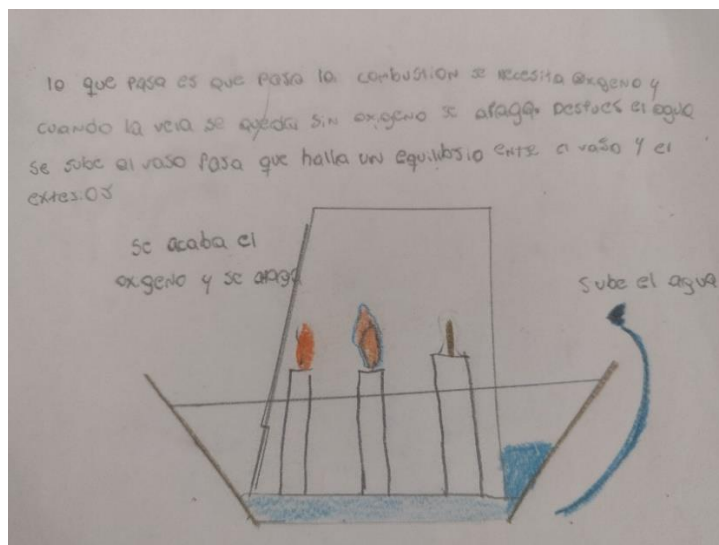 lo que pasa es que para la combustion se necesita oxgeno y
cuando la vela se queda sin oxgeno se apaga. Despues el agua
se sube al vaso para que halla un equilibrio ente el vaso y el
exterior
se acaba el
oxgeno y se apaga
sube el agua